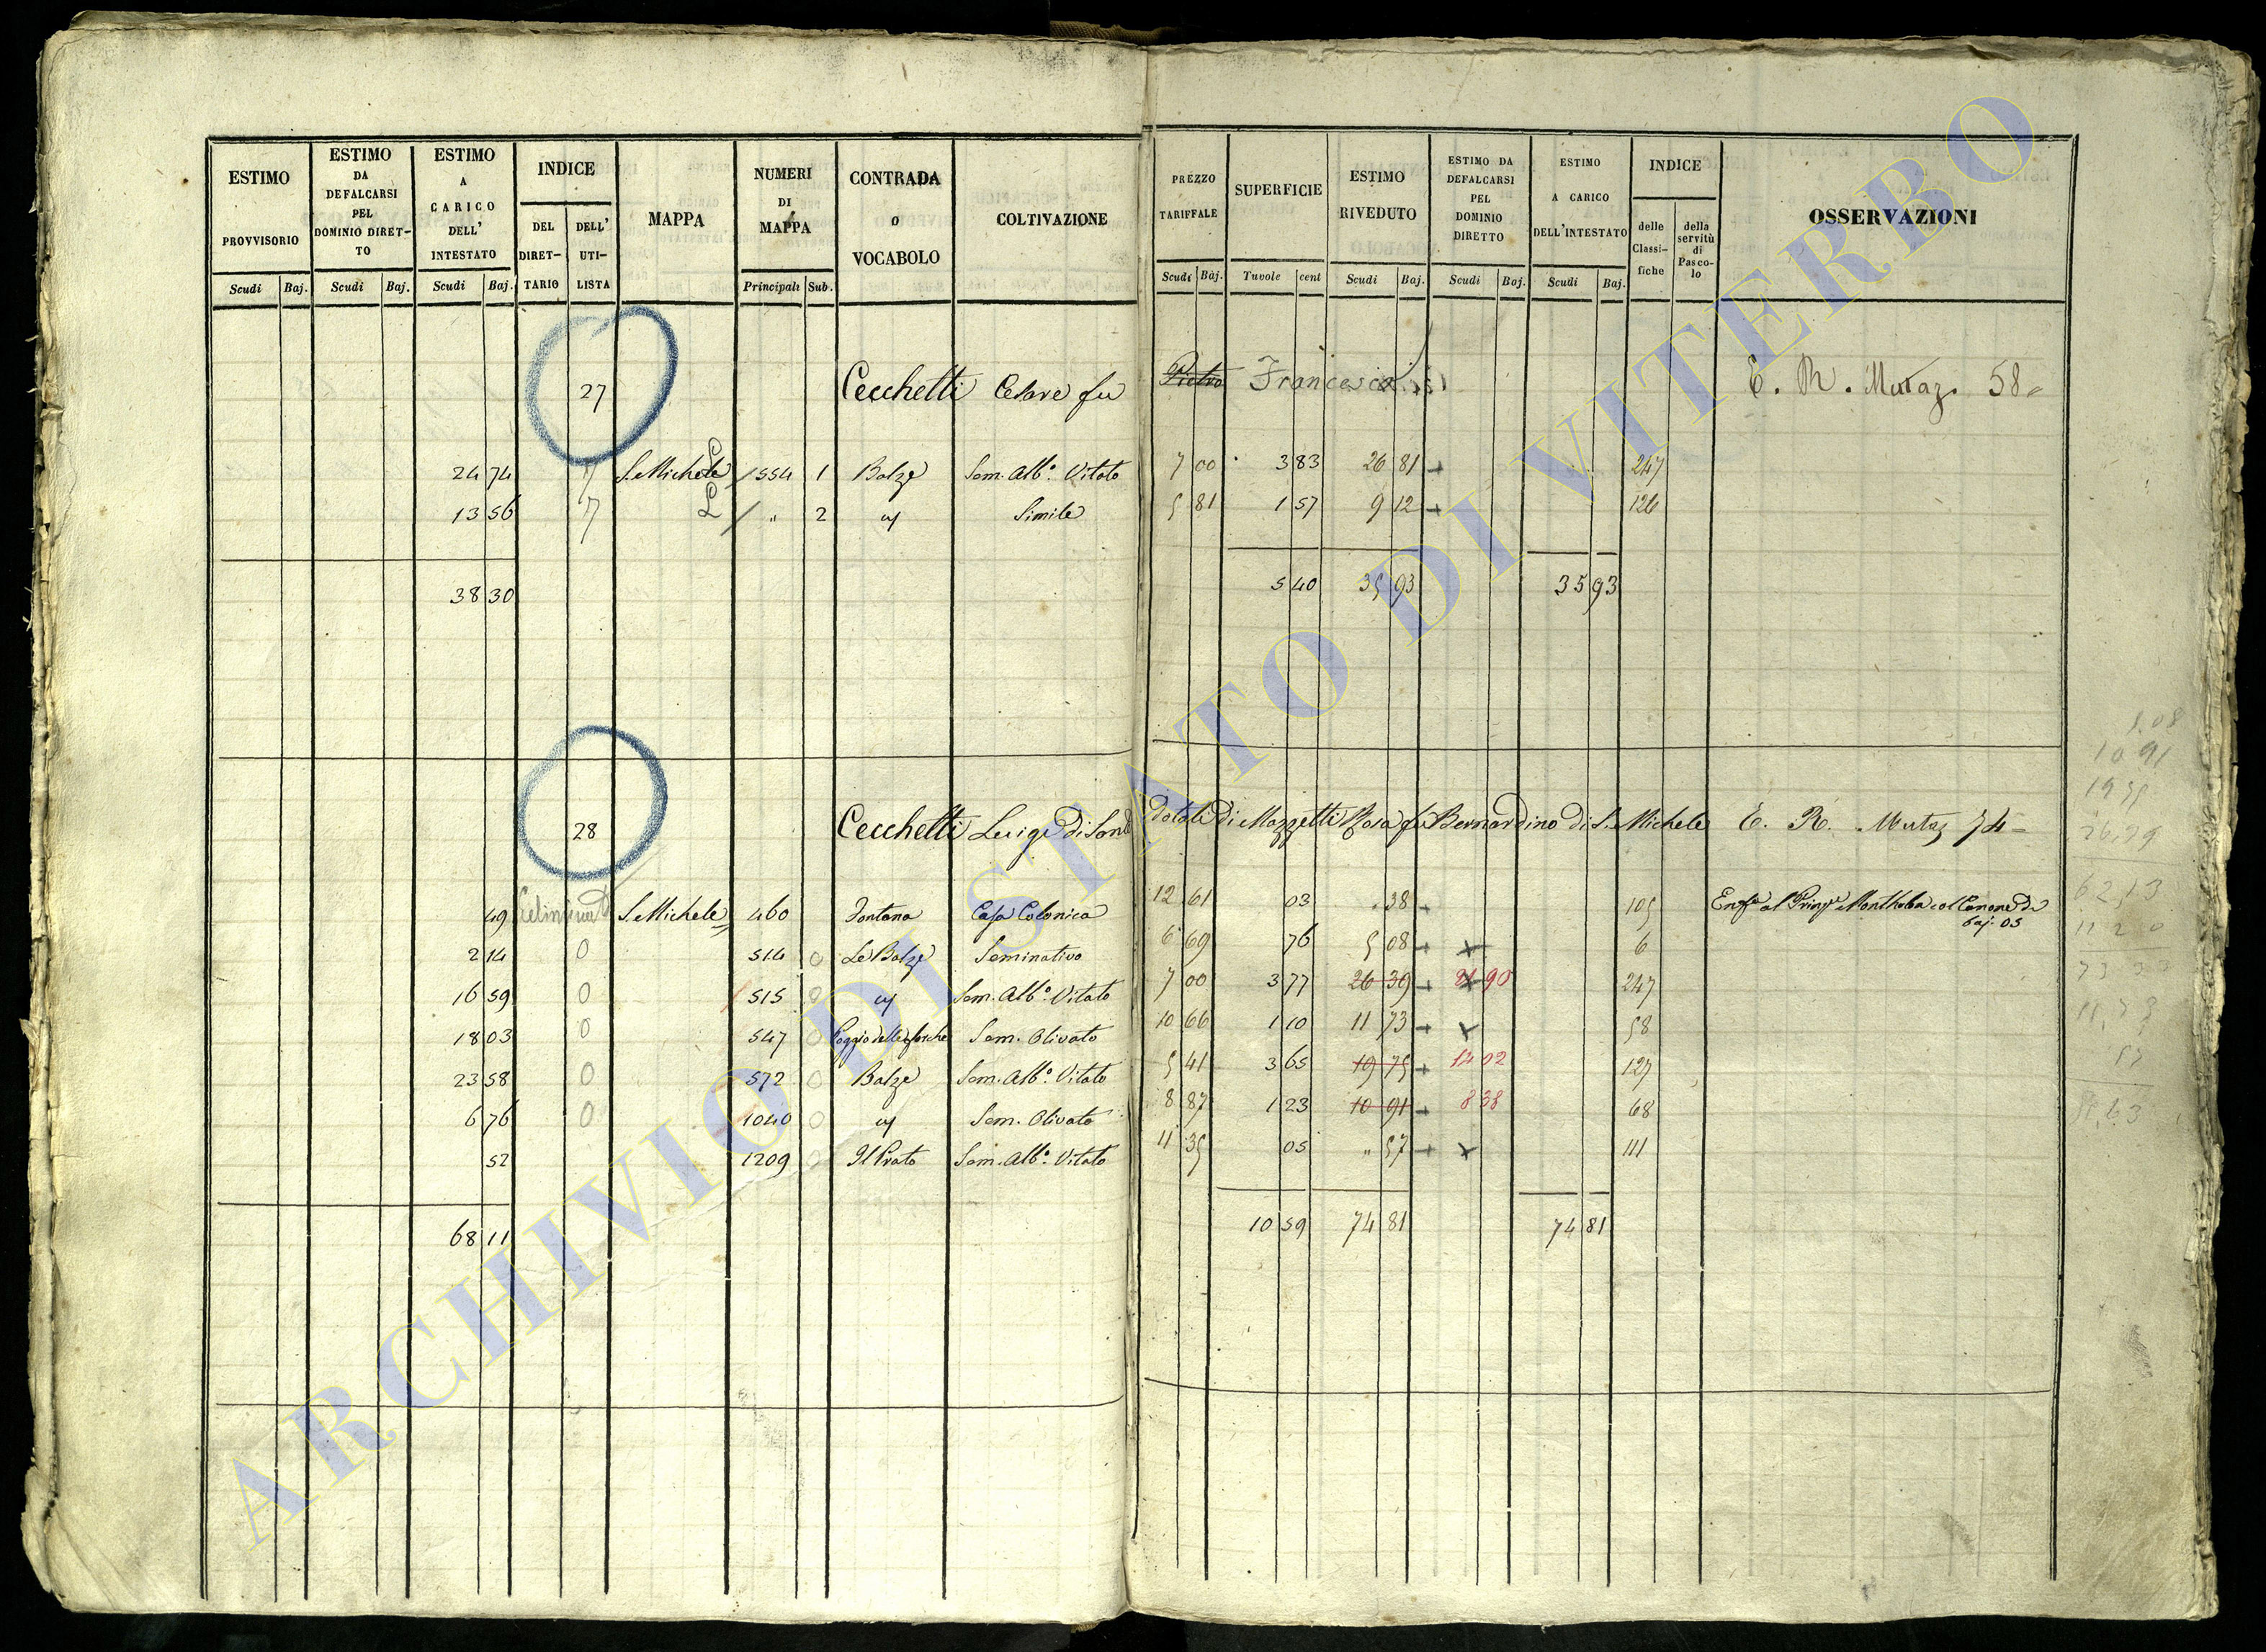 ESTIMO PROVVISORIO Scudi Baj.
ESTIMO DA DEFALCARSI PEL DOMINIO DIRETTO Scudi Baj.
ESTIMO A CARICO DELL' INTESTATO Scudi Baj.
INDICE DEL DIRETTARIO DELL' UTILISTA
MAPPA
NUMERI DI MAPPA Principali Sub.
CONTRADA o VOCABOLO
COLTIVAZIONE
PREZZO TARIFFALE Scudi Baj.
SUPERFICIE Tavole cent
ESTIMO RIVEDUTO Scudi Baj.
ESTIMO DA DEFALCARSI PEL DOMINIO DIRETTO Scudi Baj.
ESTIMO A CARICO DELL'INTESTATO Scudi Baj.
INDICE delle Classifiche della servitù di Pascolo
OSSERVAZIONI
27 Cecchetti Cesare fu Pietro Francesco E. R. Mutaz. 58
24 74 S. Michele 554 1 Balze Sem. Alb.º Vitato 7 00 3 83 26 81 247
13 56 " 2 Simile 5 81 1 57 9 12 126
38 30 5 40 35 93 35 93
28 Cecchetti Luigi di Dotale di Mazzetti Rosa fu Bernardino di S. Michele E. R. Mutaz 74
49 S. Michele 460 Fontana Casa Colonica 12 61 03 38 105 al Canone di baj. 05
2 14 0 514 0 Le Balze Seminativo 6 69 76 5 08 + x 6
16 59 0 515 0 Sem. Alb.º Vitato 7 00 3 77 26 39 + 90 247
18 03 0 547 0 Poggio delle forche Sem. Olivato 10 66 1 10 11 73 + x 58
23 58 0 572 0 Balze Sem. Alb.º Vitato 5 41 3 65 19 75 + 02 127
6 76 0 1040 0 Sem. Olivato 8 87 1 23 10 91 + 8 38 68
52 1209 Il Prato Sem. Alb.º Vitato 11 35 05 " 57 + x 111
68 11 10 59 74 81 74 81
10 91
62,13
ARCHIVIO DI STATO DI VITERBO